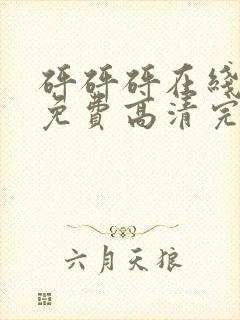 砰砰砰在线
免费高清完
六月天狼